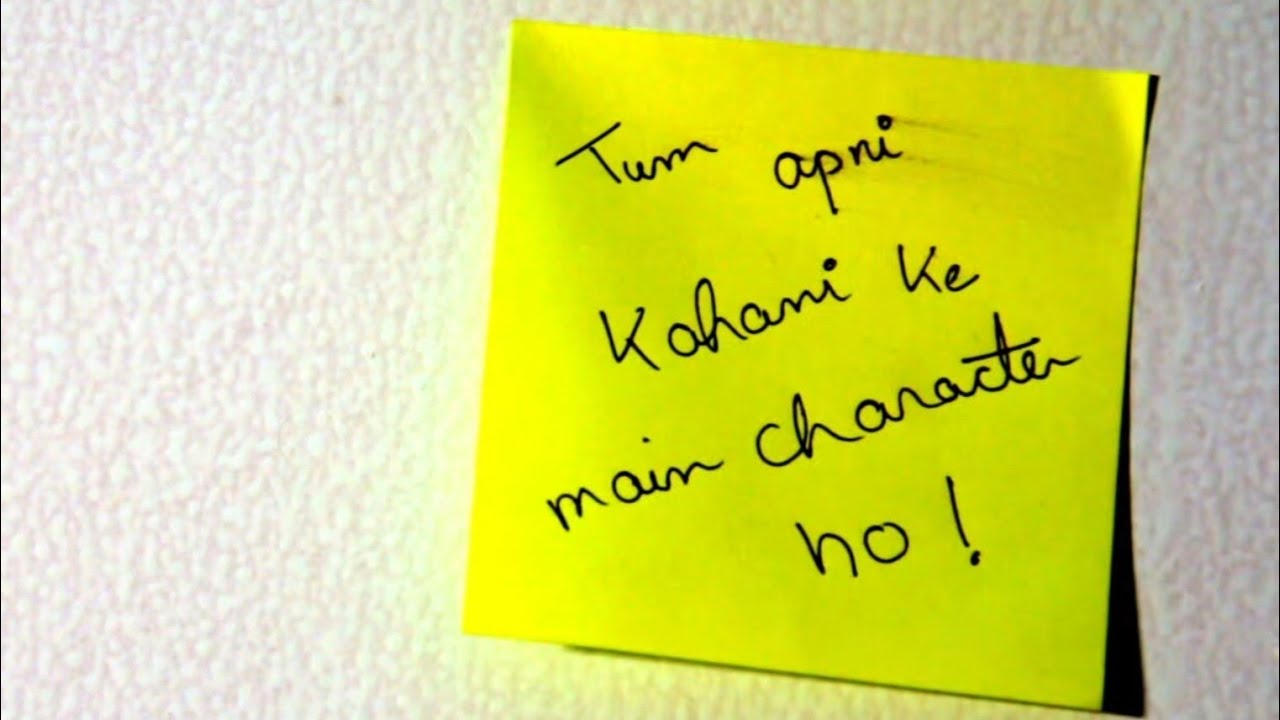 Tum apni
Kahani ke
main character
ho!